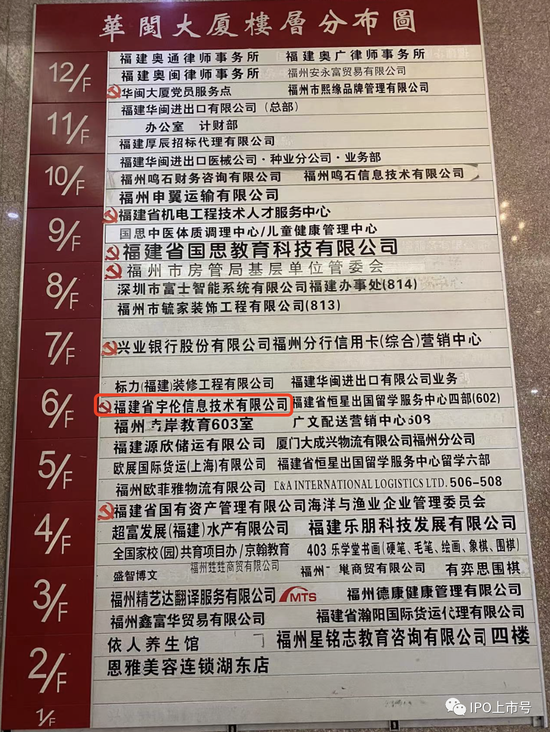 華閩大厦樓層分布圖
12/F
福建奥通律师事务所 福建奥广律师事务所
福建奥闽律师事务所 福州安永富贸易有限公司
华闽大厦党员服务点 福州市熙缘品牌管理有限公司
11/F
福建华闽进出口有限公司（总部）
办公室 计财部
福建厚辰招标代理有限公司
10/F
福建华闽进出口医械公司·种业分公司·业务部
福州鸣石财务咨询有限公司 福州鸣石信息技术有限公司
福州申翼运输有限公司
9/F
福建省机电工程技术人才服务中心
国思中医体质调理中心/儿童健康管理中心
福建省国思教育科技有限公司
8/F
福州市房管局基层单位管委会
深圳市富士智能系统有限公司福建办事处(814)
福州市毓家装饰工程有限公司(813)
7/F
兴业银行股份有限公司福州分行信用卡(综合)营销中心
6/F
标力(福建)装修工程有限公司 福建华闽进出口有限公司业务
福建省宇伦信息技术有限公司 福建省恒星出国留学服务中心四部(602)
福州 岸教育603室 广文配送营销中心608
5/F
福建源欣储运有限公司 厦门大成兴物流有限公司福州分公司
欧展国际货运(上海)有限公司 福建省恒星出国留学服务中心留学六部
福州欧菲雅物流有限公司 E&A INTERNATIONAL LOGISTICS LTD. 506-508
4/F
福建省国有资产管理有限公司海洋与渔业企业管理委员会
超富发展(福建)水产有限公司 福建乐朋科技发展有限公司
全国家校(园)共育项目办/京翰教育 403 乐学堂书画(硬笔、毛笔、绘画、象棋、围棋)
盛智博文 福州 商贸有限公司 福州 巢商贸有限公司 有弈思围棋
3/F
福州精艺达翻译服务有限公司 MTS 福州德康健康管理有限公司
福州鑫富华贸易有限公司 福建省瀚阳国际货运代理有限公司
2/F
依人养生馆 福州星铭志教育咨询有限公司 四楼
恩雅美容连锁湖东店
1/F
IPO上市号